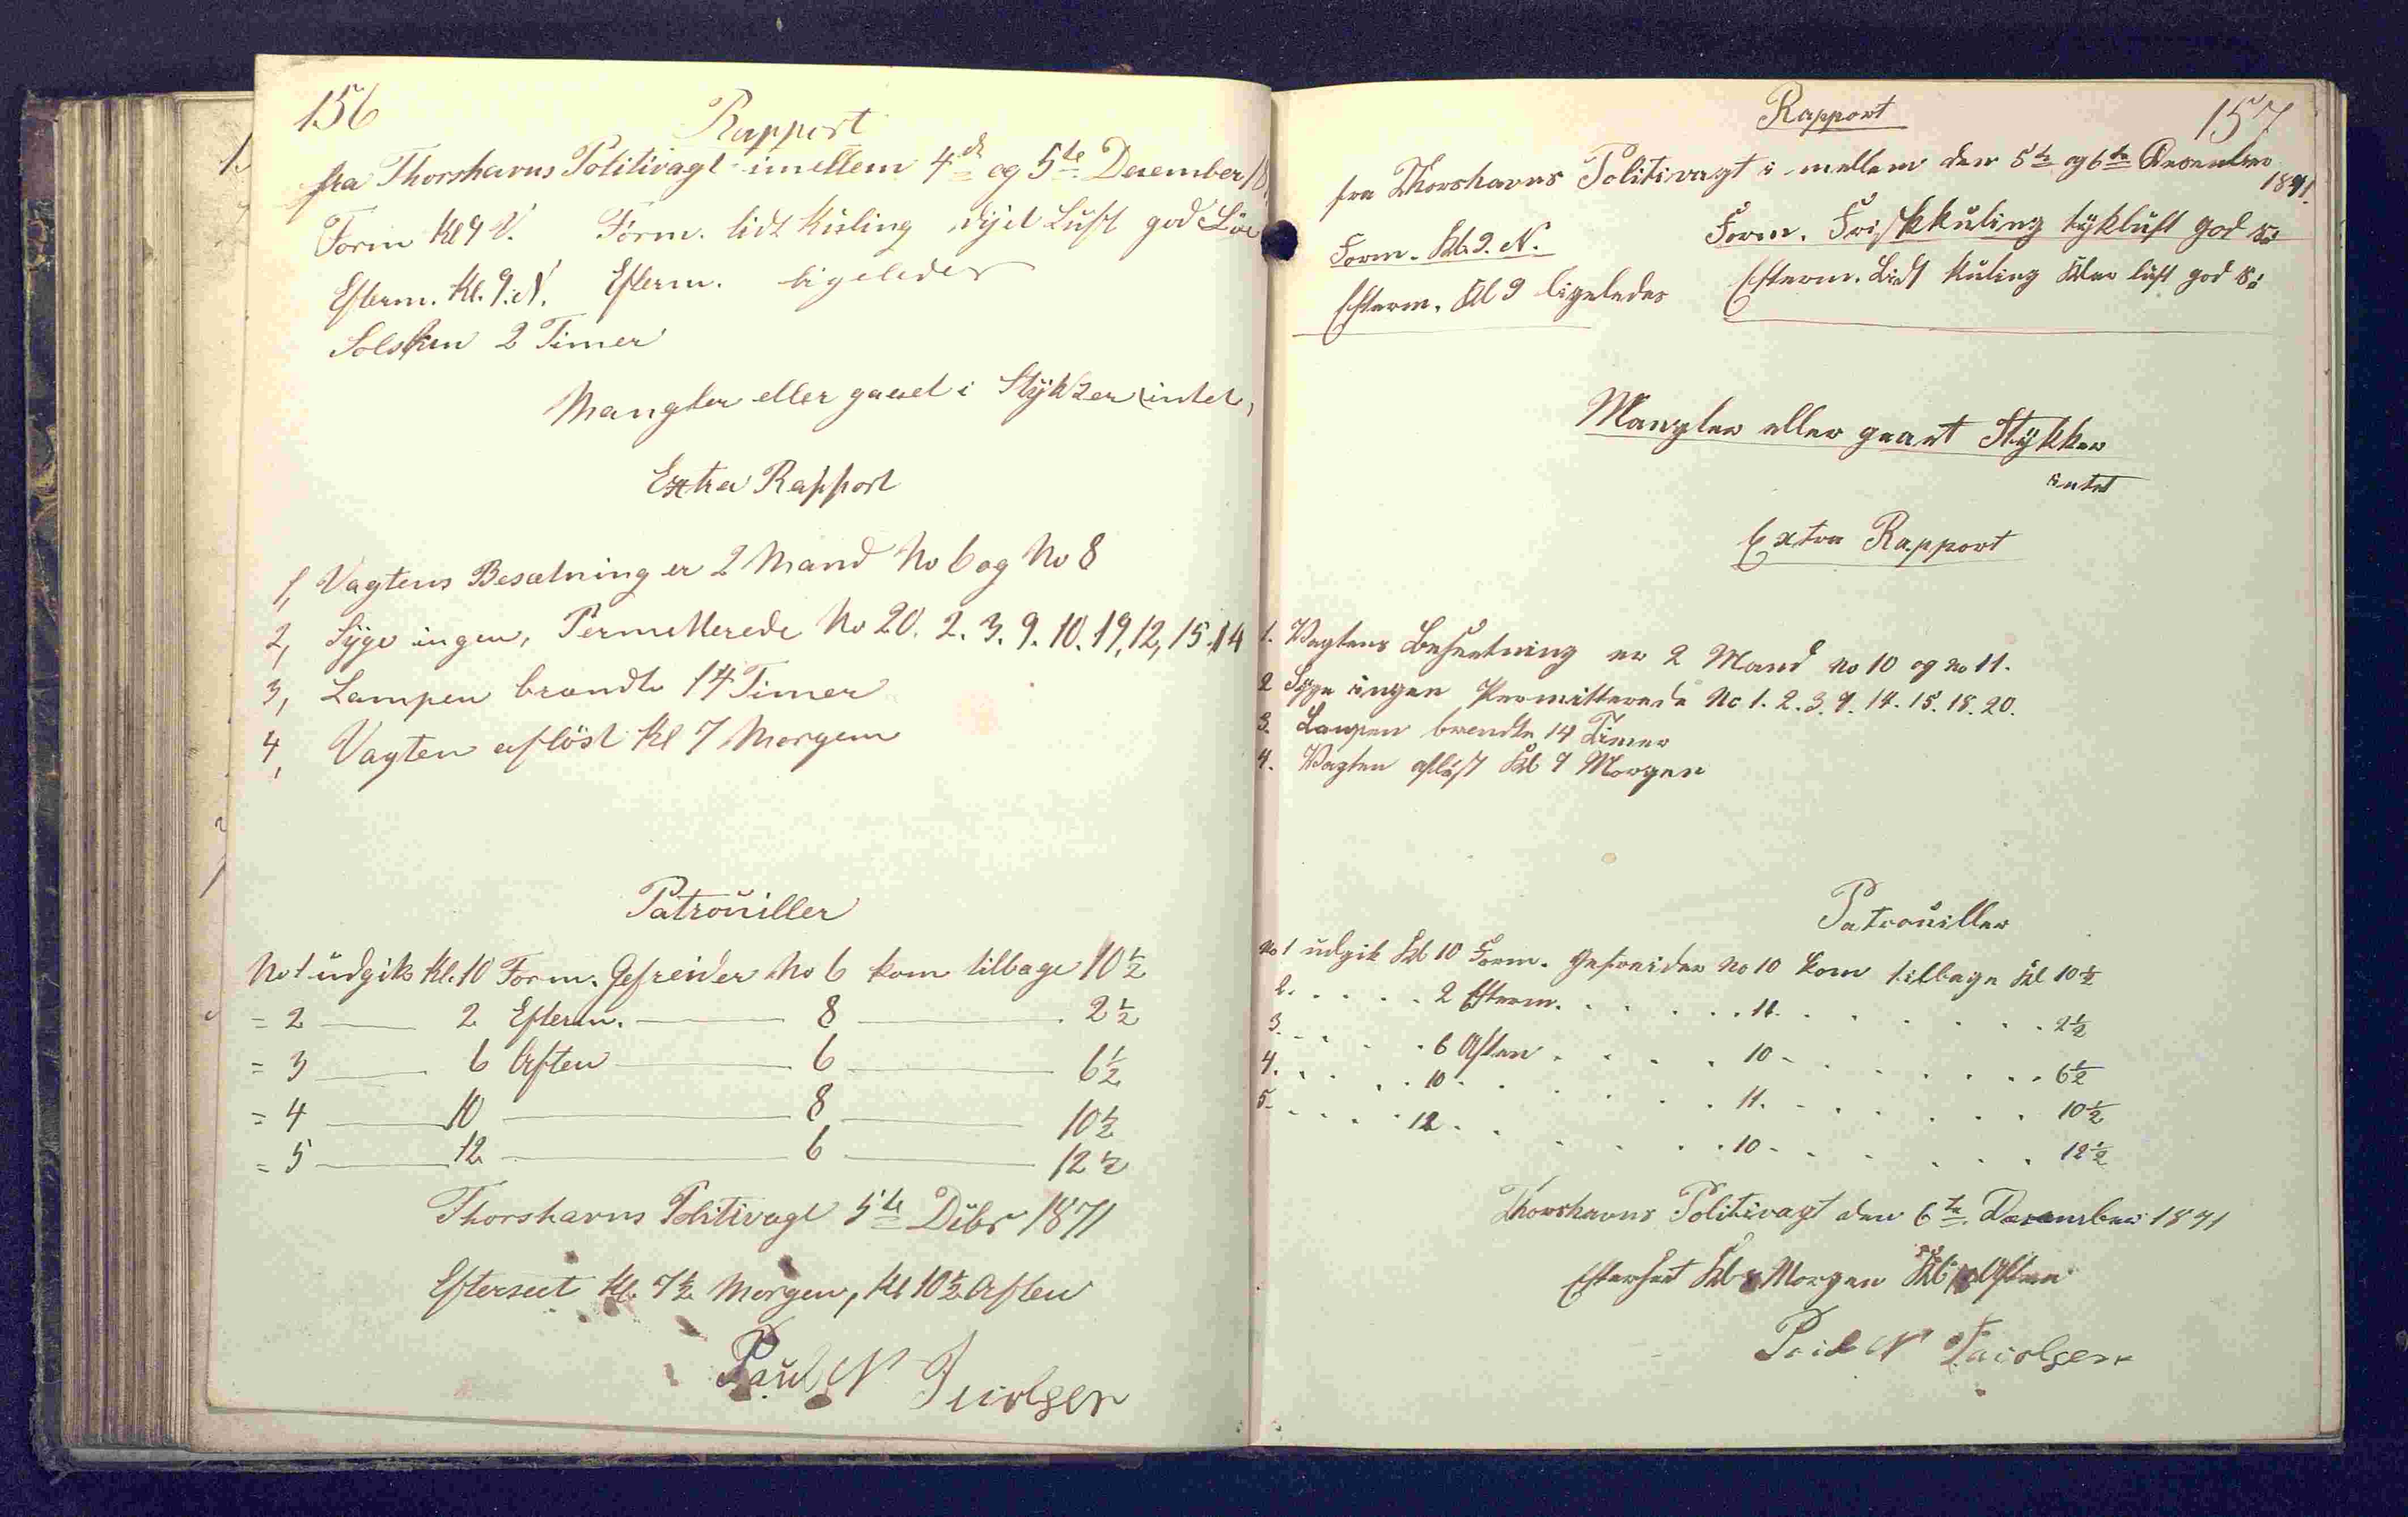 156
Rapport
fra Thorshavns Politivagt imellem 4de og 5te Desember 18
Form Kl 9 V. Form. lidt Kuling dyit Luft god Söe
Efterm. Kl. 9. N. Efterm. ligeledes
Solskin 2 Timer
Mangler eller gaaet i Stykker intet,
Extra Rapport
1, Vagtens Besætning er 2 Mand No 6 og No 8
2, Syge ingen, Permitterede No 20. 2. 3. 9. 10. 19, 12, 15. 14
3, Lampen brændte 14 Timer
4, Vagten aflöst Kl 7 Morgen
Patrouiller
No 1 udgik Kl. 10 Form. Gefreider No 6 kom tilbage 10 1/2
= 2 — 2 Efterm. — 8 — 2 1/2
= 3 — 6 Aften — 6 — 6 1/2
= 4 — 10 — 8 — 10 1/2
= 5 — 12 — 6 — 12 1/2
Thorshavns Politivagt 5te Dcbr 1871
Efterseet Kl. 7 1/2 Morgen, Kl 10 1/2 Aften
Paul N
157
Rapport
fra Thorshavns Politivagt i mellem den 5te og 6te Desember
1871.
Form. Kl. 9. N. Form. Frisk Kuling tykluft god Sö
Efterm. Kl 9 ligeledes Efterm. Lidt Kuling Klar luft god Sö
Mangler eller gaaet Stykker
intet
Extra Rapport
1. Vagtens Besætning er 2 Mand no 10 og no 11.
2 Syge ingen Permitterede No 1. 2. 3. 9. 14. 15. 18. 20.
3. Lampen brendte 14 Timer
4. Vagten aflöst Kl 7 Morgen
Patrouiller
No 1 udgik Kl 10 Form. Gefreider No 10 kom tilbage Kl 10 1/2
2. . . . . 2 Efterm. . . . . . 11. . . . . . . . 2 1/2
3. . . . . 6 Aften . . . . . 10 . . . . . . . 6 1/2
4. . . . . 10 . . . . . . 11. . . . . . . 10 1/2
5. . . . . 12 . . . . . . 10 . . . . . . 12 1/2
Thorshavns Politivagt den 6te Desember 1871
Efterseet Kl 8 Morgen Kl Aften
N